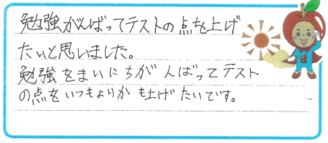 勉強がんばってテストの点を上げ
たいと思いました。
勉強をまいにちがんばってテスト
の点をいつもよりかも上げたいです。